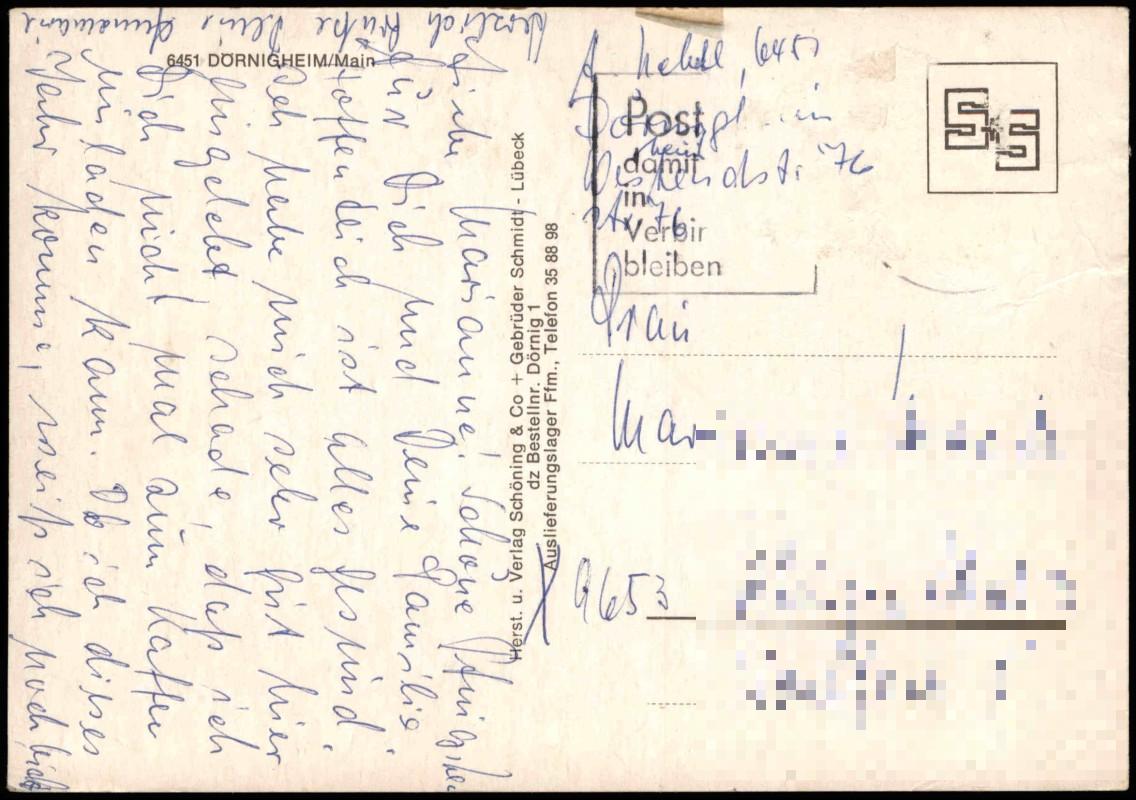 6451 DÖRNIGHEIM/Main
Liebe Marianne! Schöne Pfingsten
für Dich und Deine Familie.
Hoffendlich ist alles gesund.
Ich habe mich sehr gut hier
eingelebt, schade, daß ich
Dich nicht mal zum Kaffee
einladen kann. Ob ich dieses
Jahr komme, weiß ich noch nicht
Herzlich Grüße Deine Annemarie
Herst. u. Verlag Schöning & Co + Gebrüder Schmidt - Lübeck
dz Bestellnr. Dörnig 1
Auslieferungslager Ffm., Telefon 35 88 98
A 6451
heim
76
Str. 76
Post
damit
in
Verbir
bleiben
Frau
Mar
9653